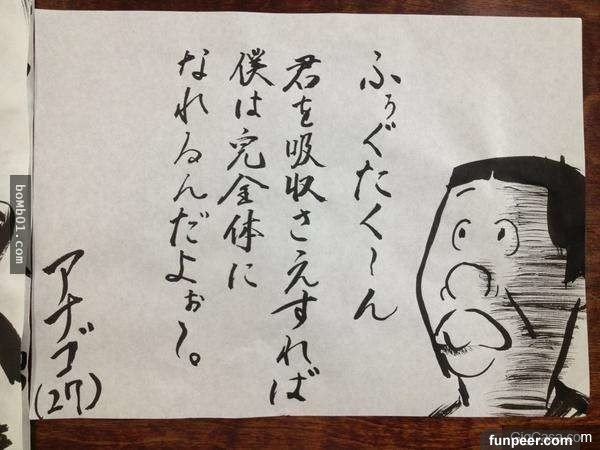 ふぅぐたく〜ん
君を吸収さえすれば
僕は完全体に
なれるんだよぉ〜。
アナゴ
(27)
bomb01.com
GigCasa.com
funpeer.com